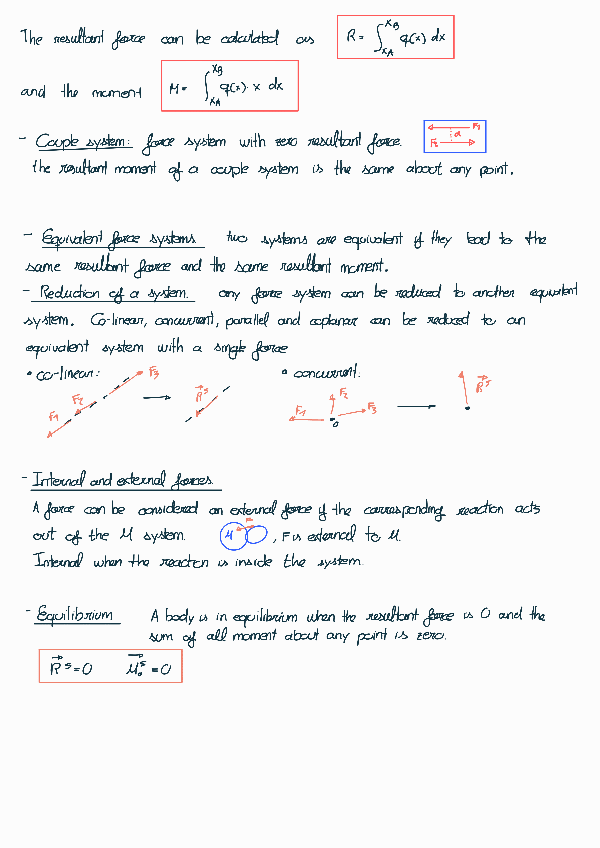 The resultant force can be calculated as R = ∫_{xA}^{xB} q(x) dx
and the moment M = ∫_{xA}^{xB} q(x) · x dx
- Couple system: force system with zero resultant force. F1 a F2
the resultant moment of a couple system is the same about any point.
- Equivalent force systems two systems are equivalent if they lead to the
same resultant force and the same resultant moment.
- Reduction of a system. any force system can be reduced to another equivalent
system. Co-linear, concurrent, parallel and coplanar can be reduced to an
equivalent system with a single force
• co-linear: F1 F2 F3 → R⃗ˢ
• concurrent: F1 F2 F3 o → R⃗ˢ
- Internal and external forces
A force can be considered an external force if the corresponding reaction acts
out of the M system. M F , F is external to M.
Internal when the reaction is inside the system.
- Equilibrium A body is in equilibrium when the resultant force is 0 and the
sum of all moment about any point is zero.
R⃗ˢ = 0 M⃗ₒˢ = 0